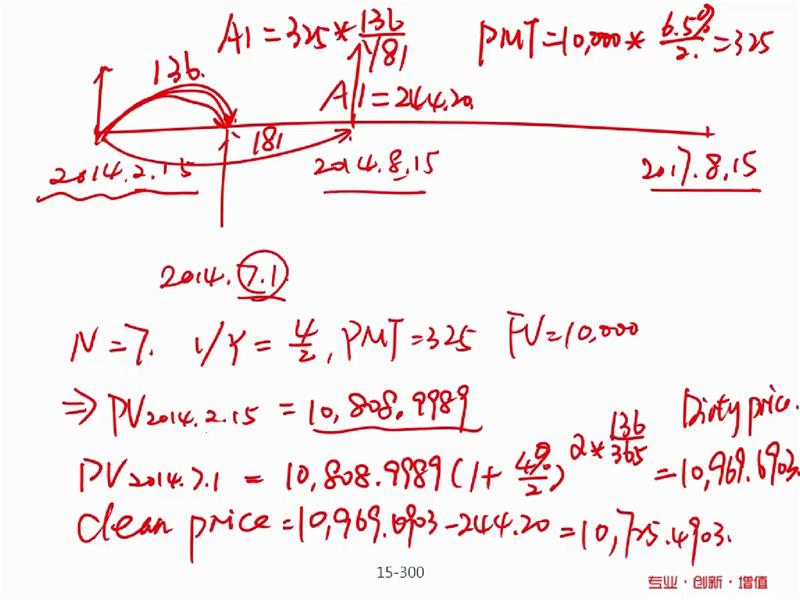 AI = 325 * 136/181
PMT = 10,000 * 6.5%/2 = 325
136.
AI = 244.20
181
2014.2.15
2014.8.15
2017.8.15
2014.7.1
N = 7. I/Y = 4/2, PMT = 325 FV = 10,000
⇒ PV2014.2.15 = 10,808.9989
Dirty price.
PV2014.7.1 = 10,808.9989 (1 + 4%/2)^2*136/365 = 10,969.6903.
clean price = 10,969.6903 - 244.20 = 10,725.4903.
15-300
专业·创新·增值